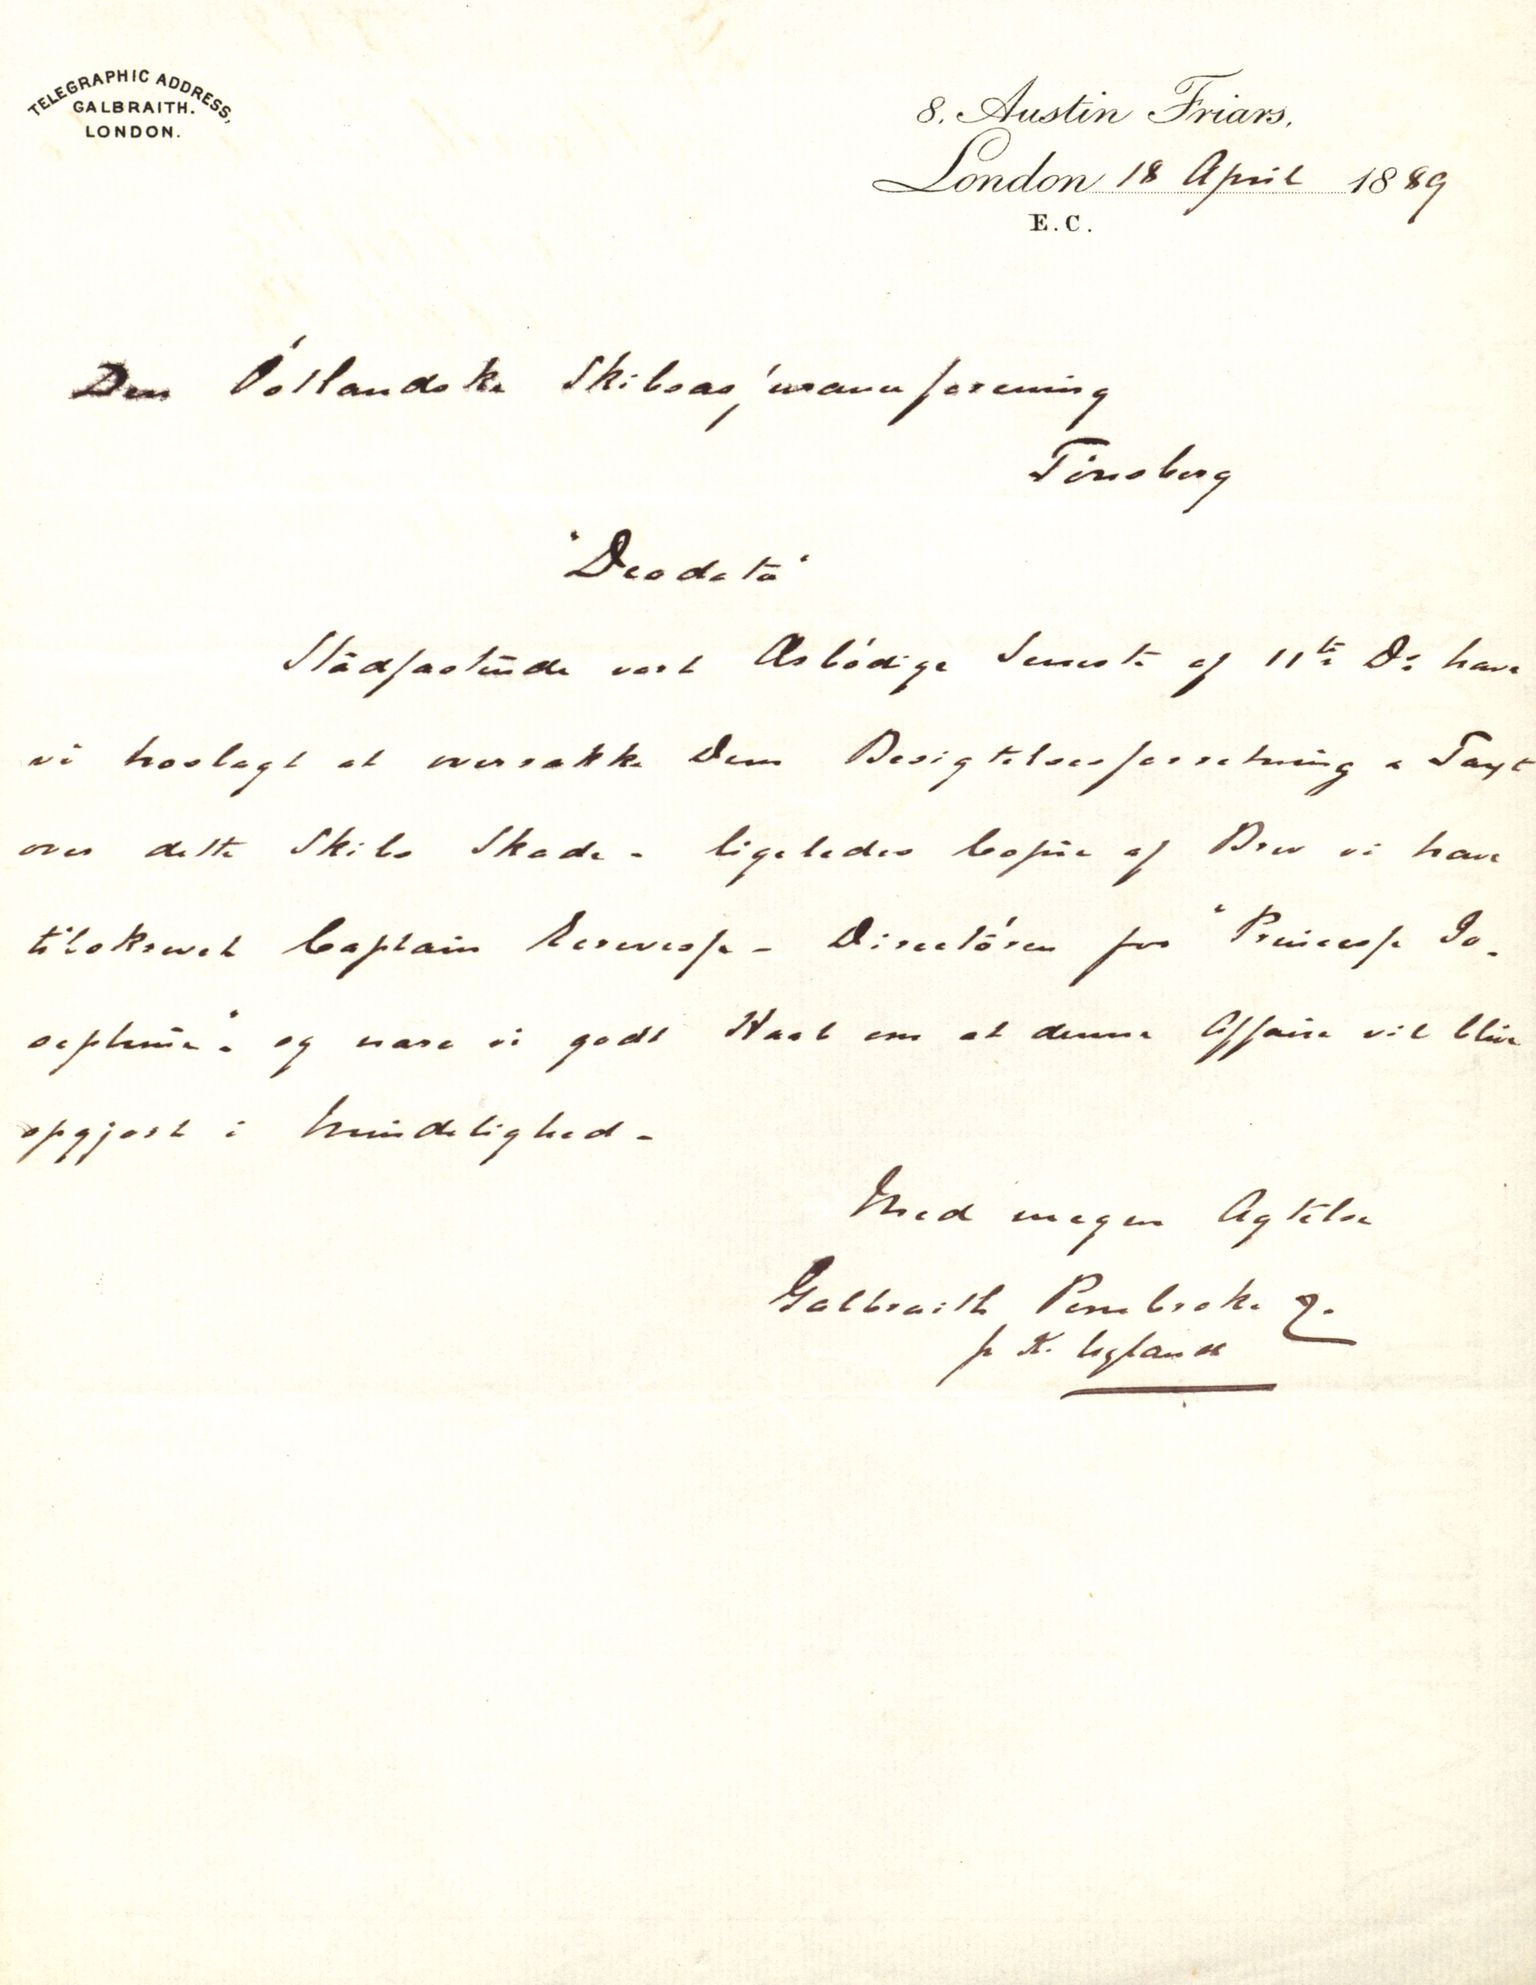 TELEGRAPHIC ADDRESS,
GALBRAITH.
LONDON.
8, Austin Friars,
London 18 April 1889
E.C.
Den Östlandske Skibsassuranceforening
Tönsberg
"Deodata"
Stadfæstende vort Ærbödige Seneste af 11te Ds have
vi hoslagt at oversække Dem Besigtelsesforretning & Taxt
over dette Skibs Skade - ligeledes Copie af Brev vi have
tilskrevet Captain - Directören for "Princess Jo-
sephine" - og nære vi godt Haab om at denne Affaire vil blive
opgjort i Mindelighed -
Med megen Agtelse
Galbraith Pembroke &
p K. Ugland